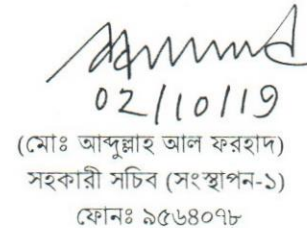 02/10/19
(মোঃ আব্দুল্লাহ আল ফরহাদ)
সহকারী সচিব (সংস্থাপন-১)
ফোনঃ ৯৫৬৪০৭৮